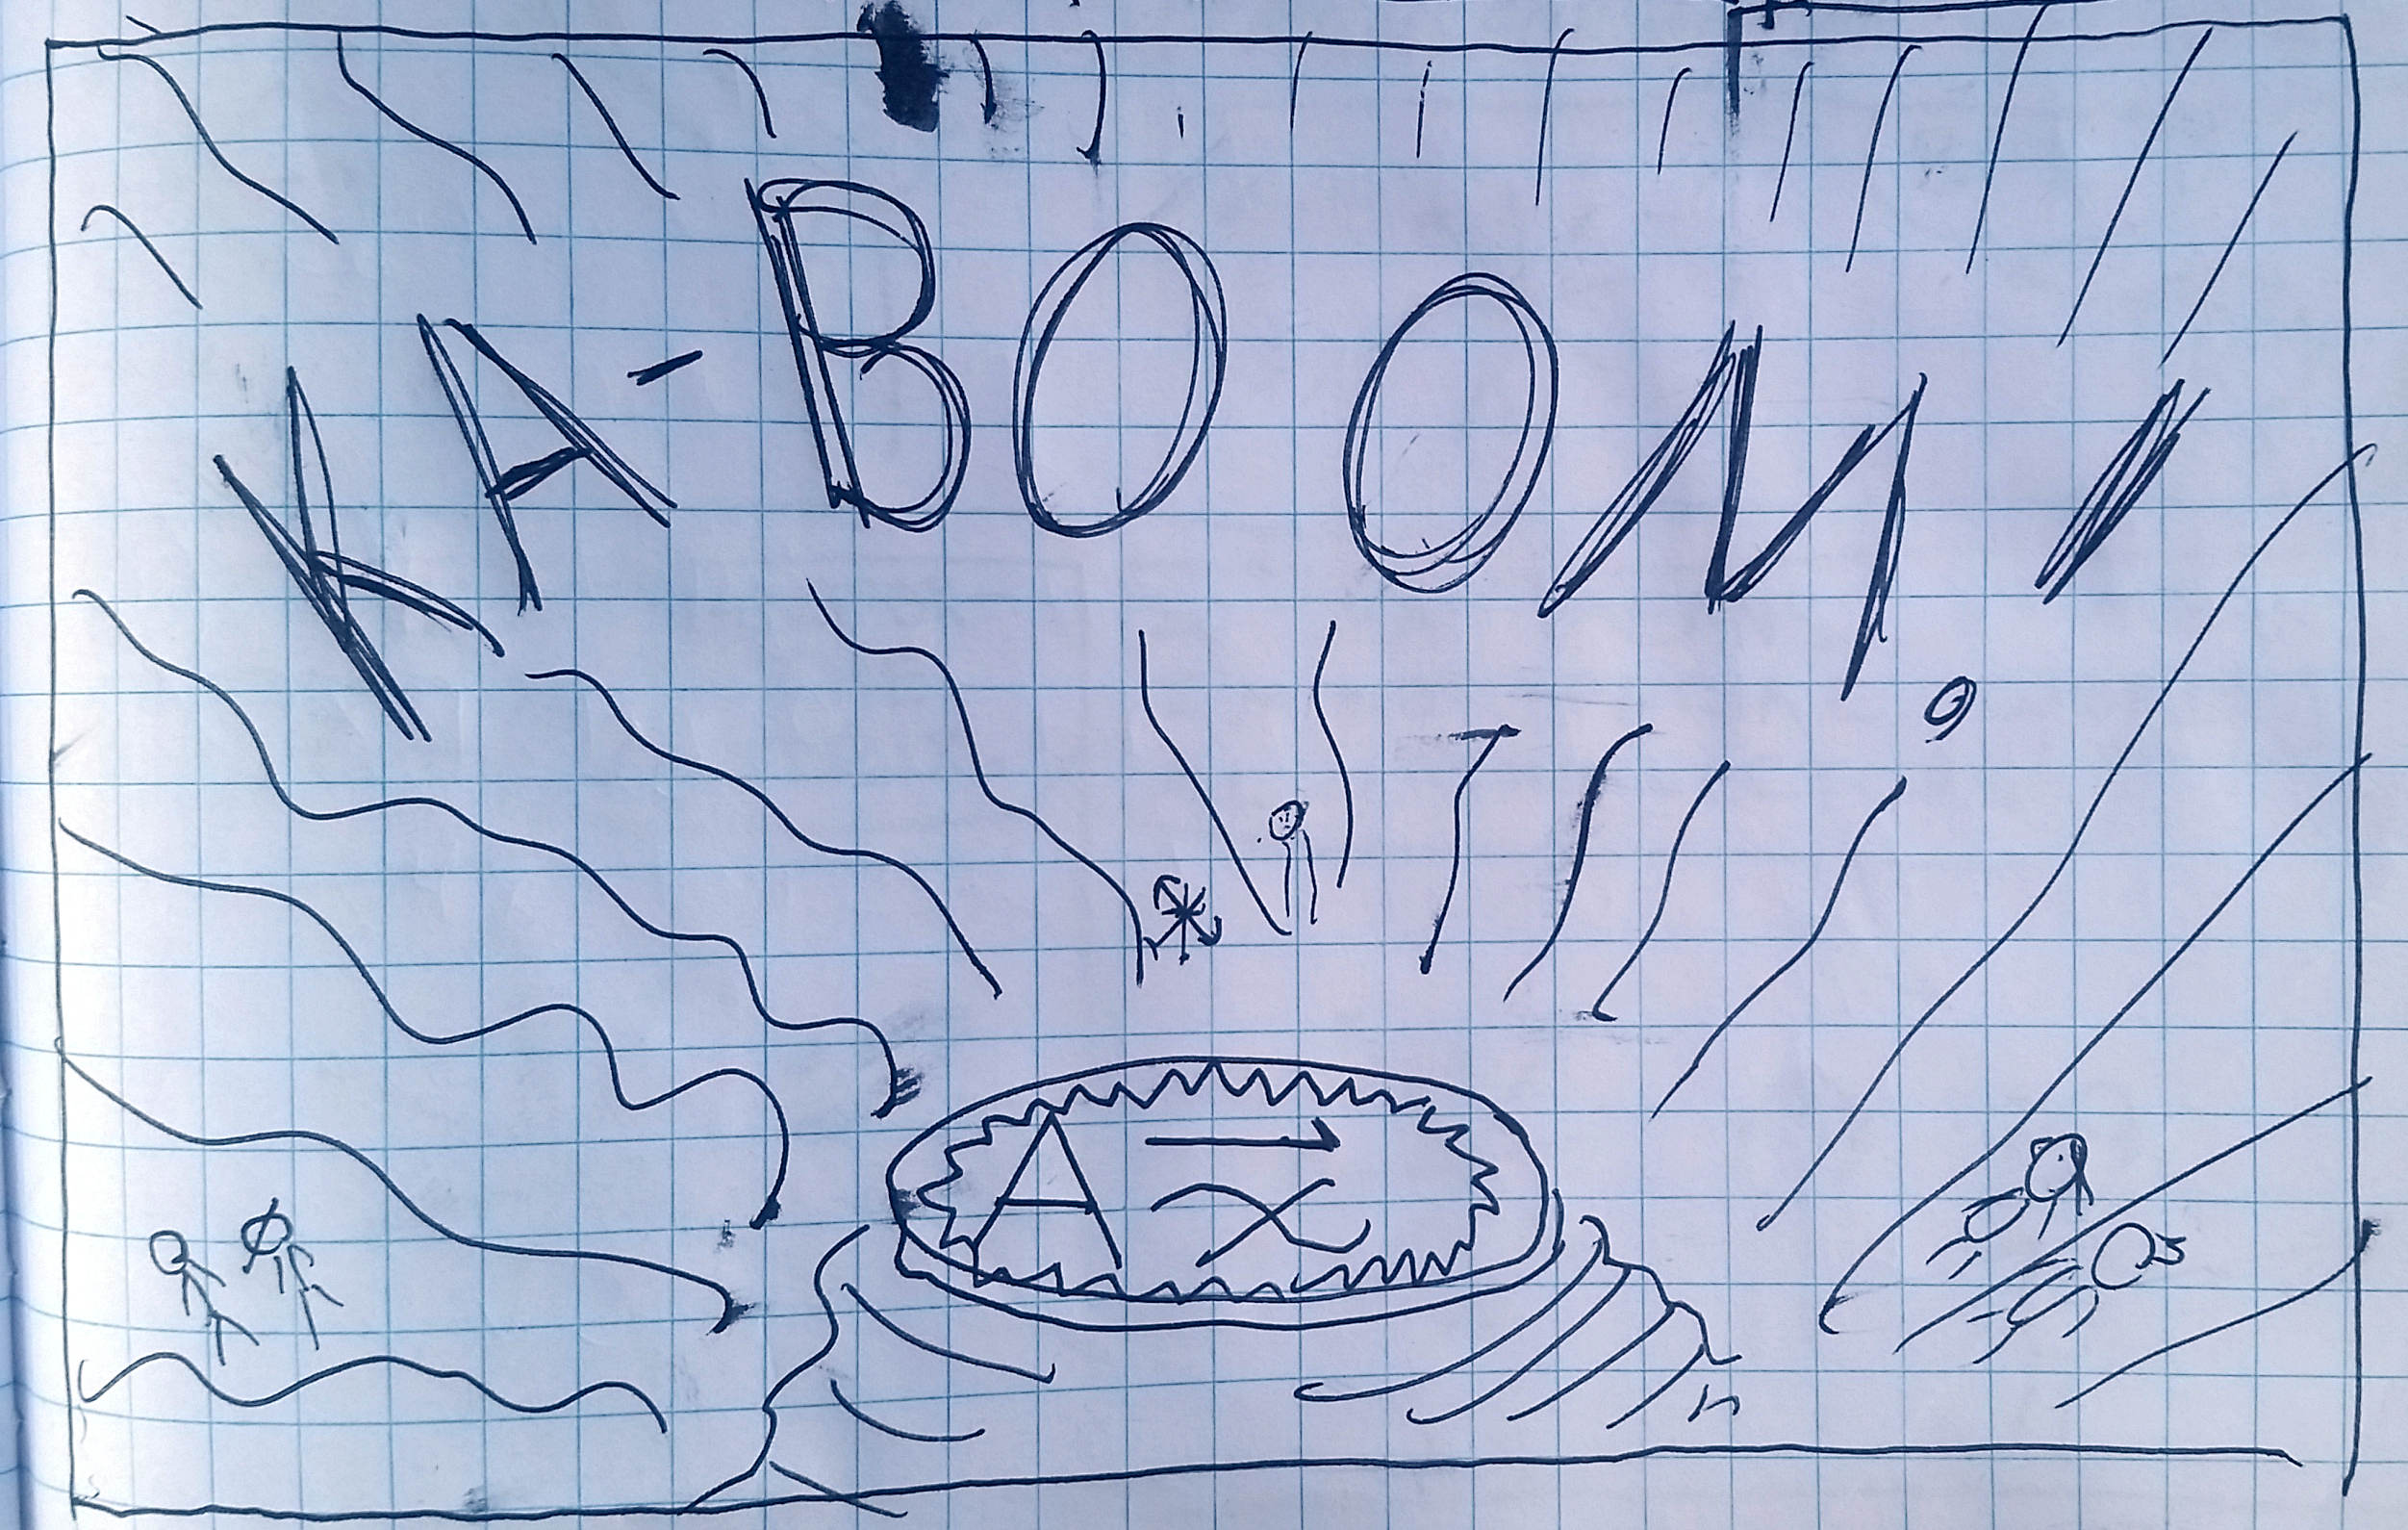 KA-BOOM!
A → ∝